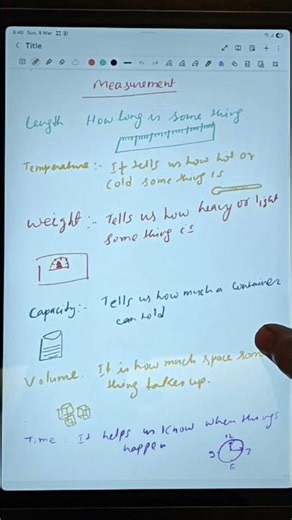 8:40 Sun, 9 Mar
Title
Measurement
Length: How long is some thing
Temperature:- It tells us how hot or
cold some thing is
Weight:- Tells us how heavy or light
some thing is
Capacity:- Tells us how much a container
can hold
Volume: It is how much space som
thing takes up.
Time: It helps us know when things
happen
12
9
3
6